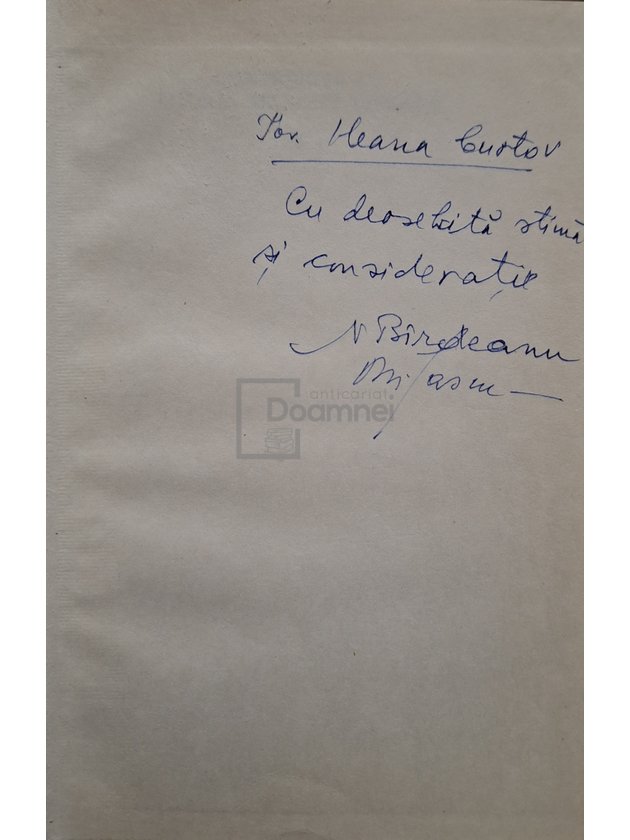 Tov. Ileana Custov
Cu deosebită stimă
și considerație
N Bîrdeanu
anticariat
Doamnei